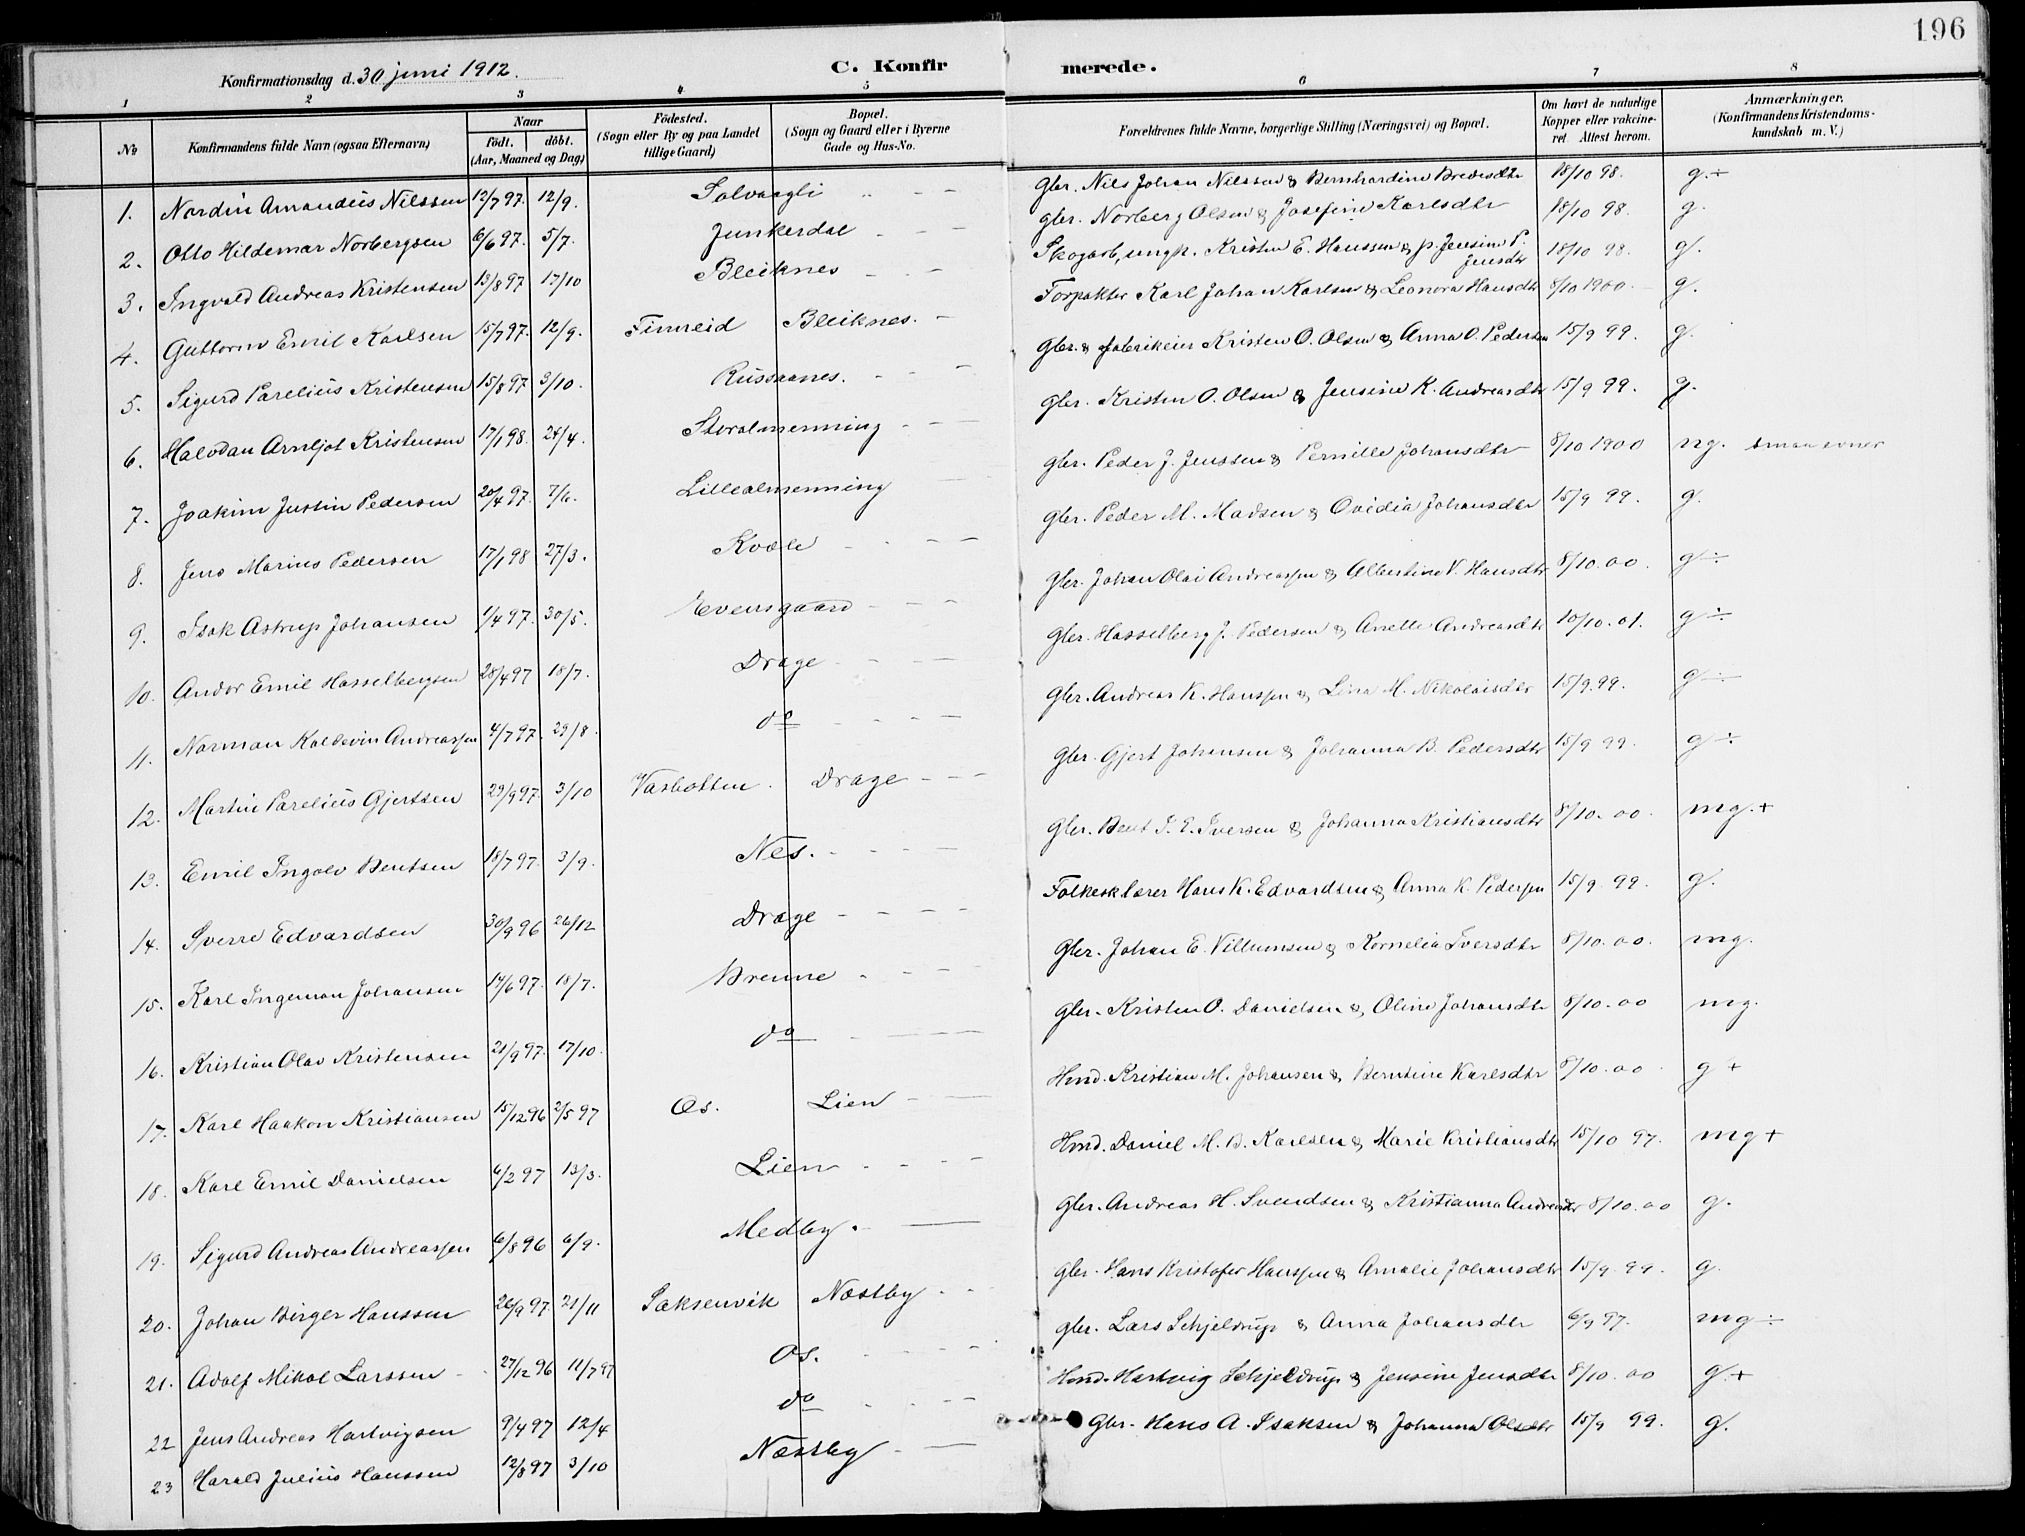 196
Konfirmationsdag d. 30 juni 1912.
C. Konfirmerede.
1 2 3 4 5 6 7 8
No
Konfirmandens fulde Navn (ogsaa Efternavn)
Naar
født. døbt.
(Aar, Maaned og Dag)
Fødested.
(Sogn eller By og paa Landet
tillige Gaard)
Bopæl.
(Sogn og Gaard eller i Byerne
Gade og Hus-No.
Forældrenes fulde Navne, borgerlige Stilling (Næringsvei) og Bopæl.
Om havt de naturlige
Kopper eller vaccine-
ret Attest herom.
Anmærkninger.
(Konfirmandens Kristendoms-
kundskab m. V.)
1. Nordin Amandus Nilssen 12/7 97. 12/9. Solvaagli Gbr. Nils Johan Nilssen & Bernhardine Bredesdtr 18/10 98. g.+
2. Otto Hildemar Norbergsen 6/6 97. 5/7. Junkerdal gbr. Norberg Olsen & Josefine Karlsdtr 18/10 98. g.
3. Ingvald Andreas Kristensen 13/8 97 17/10 Bleiknes Skogarb, ungk. Kristen E. Hanssen & p. Jensine P. Jensdtr 18/10 98. g.
4. Guttorm Emil Karlsen 15/7 97. 12/9. Finneid Bleiknes. Forpakter Karl Johan Karlsen & Leonora Hansdtr 8/10 1900 g.
5. Sigurd Parelius Kristensen 15/8 97 3/10. Russaanes. Gbr. & fabrikeier Kristen O. Olsen & Anna O. Pedersen 15/9 99. g.
6. Halvdan Arnljot Kristensen 17/1 98. 24/4. Storalmenning Gbr. Kristen O. Olsen & Jensine K. Andreasdtr 15/9 99. g.
7. Joakim Justin Pedersen 20/4 97. 7/6. Lillealmenning gbr. Peder J. Jenssen & Pernille Johansdtr 8/10 1900 ng. smaa evner
8. Jens Marius Pedersen 17/1 98 27/3. Kvæle gbr. Peder M. Madsen & Ovidia Johansdtr 15/9 99. g.
9. Isak Astrup Johansen 1/4 97. 30/5. Evensgaard gbr. Johan Olai Andreassen & Albertine V. Hansdtr 8/10.00. g÷
10. Andor Emil Hasselbergsen 28/4 97 18/7. Drage Gbr. Hasselberg J. Pedersen & Anette Andreasdtr 10/10.01. g÷
11. Norman Kaldevin Andreassen 4/7 97. 29/8. do Gbr. Andreas K. Hanssen & Lina M. Nikolaisdtr 15/9.99. g÷
12. Martin Parelius Gjertsen 29/9 97. 3/10 Vasbotten. Drage Gbr. Gjert Johansen & Johanna B. Pedersdtr 15/9 99. g÷
13. Emil Ingolv Bentsen 18/7 97. 3/9. Nes. Gbr. Bent J. E. Iversen & Johanna Kristiansdtr 8/10.00. mg.+
14. Sverre Edvardsen 30/9 96 26/12 Drage Folkesk.lærer Hans K. Edvardsen & Anna K. Pedersen 15/9. 99. g.
15. Karl Ingeman Johansen 14/6 97. 18/7. Brenne Gbr. Johan E. Villumsen & Kornelia Iversdtr 8/10.00. mg.
16. Kristian Olav Kristensen 21/9 97. 17/10. do Gbr. Kristen O. Danielsen & Oline Johansdtr 8/10.00 mg.
17. Karl Haakon Kristiansen 15/12 96 2/5 97 Os. Lien Hmd. Kristian M. Johansen & Berntine Karlsdtr 8/10.00. g+
18. Karl Emil Danielsen 6/2 97 13/3. Lien Hmd. Daniel M. B. Karlsen & Marie Kristiansdtr 15/10 97. mg+
19. Sigurd Andreas Andreassen 6/8 96 6/9. Medby. Gbr. Andreas H. Svendsen & Kristianna Andreasdtr 8/10.00 g.
20. Johan Birger Hanssen 26/9 97. 21/11 Saksenvik Næstby Gbr. Hans Kristofer Hanssen & Amalie Johansdtr 15/9 99. g.
21. Adolf Mikal Larssen 27/12 96 11/7 97 Os. gbr. Lars Schjeldrup & Anna Johansdtr 6/9 97. mg÷
22 Jens Andreas Hartvigsen 9/4 97 12/4 do Hmd. Hartvig Schjeldrup & Jensine Jensdtr 8/10.00 g.+
23 Harald Julius Hanssen 12/8 97 3/10 Næstby Gbr. Hans A. Isaksen & Johanna Olsdtr 15/9 99. g.